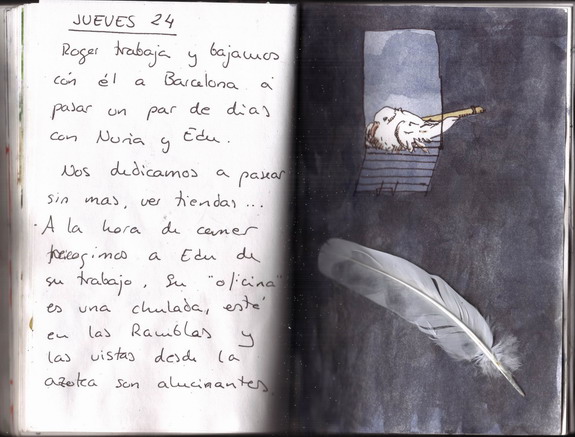 JUEVES 24
Roger trabaja y bajamos
con él a Barcelona a
pasar un par de dias
con Nuria y Edu.
Nos dedicamos a pasear
sin mas, ver tiendas...
A la hora de comer
recogimos a Edu de
su trabajo. Su "oficina"
es una chulada, esté
en las Ramblas y
las vistas desde la
azotea son alucinantes.